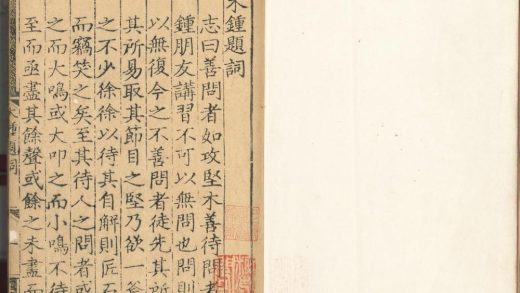 木鍾題詞
志曰善問者如攻堅木善待問者
鍾朋友講習不可以無問也問則
以無復今之不善問者徒先其所
其所易取其節目之堅乃欲一斧
之不少徐徐以待其自解則匠石
而竊笑之矣至其待人之問者或
之而大鳴或大叩之而小鳴不待
至而亟盡其餘聲或餘之未盡而